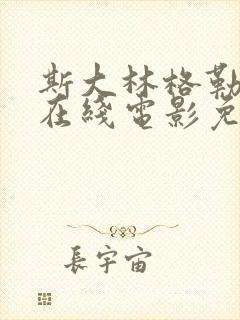 斯大林格勒
在綫電影免
長宇宙